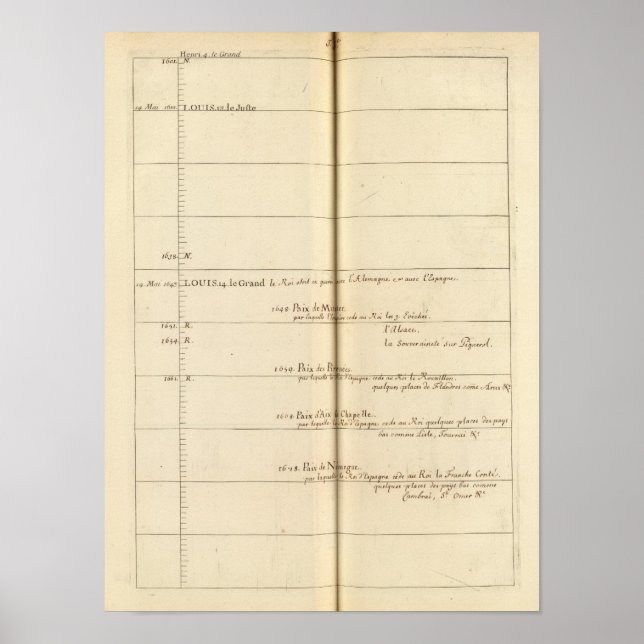 Henri.4. le Grand
1601. N.
14 Mai 1610. LOUIS.13. le Juste
1638. N.
14 Mai 1643. LOUIS.14. le Grand le Roi etoit en guerre avec l'Alemagne, et avec l'Espagne.
1648. Paix de Munster
par laquelle l'Empire cede au Roi les 3. Evêchéz.
l'Alsace.
la Souveraineté sur Pignerol.
1651. R.
1654. R.
1659. Paix des Pirenées
par laquelle le Roi d'Espagne cede au Roi le Roussillon.
quelques places de Flandres come Arras &c.
1661. R.
Paix d'Aix la Chapelle.
par laquelle le Roi d'Espagne cede au Roi quelques places des pays
bas comme Lisle, Tournai &c.
1678. Paix de Nimegue.
par laquelle le Roi d'Espagne cede au Roi la Franche Conté.
quelques places des pays bas comme
Cambrai, St. Omer &c.